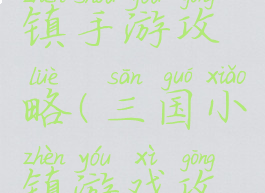 zhèn shǒu yóu gōng
镇手游攻
lüè sān guó xiǎo
略(三国小
zhèn yóu xì gōng
镇游戏攻